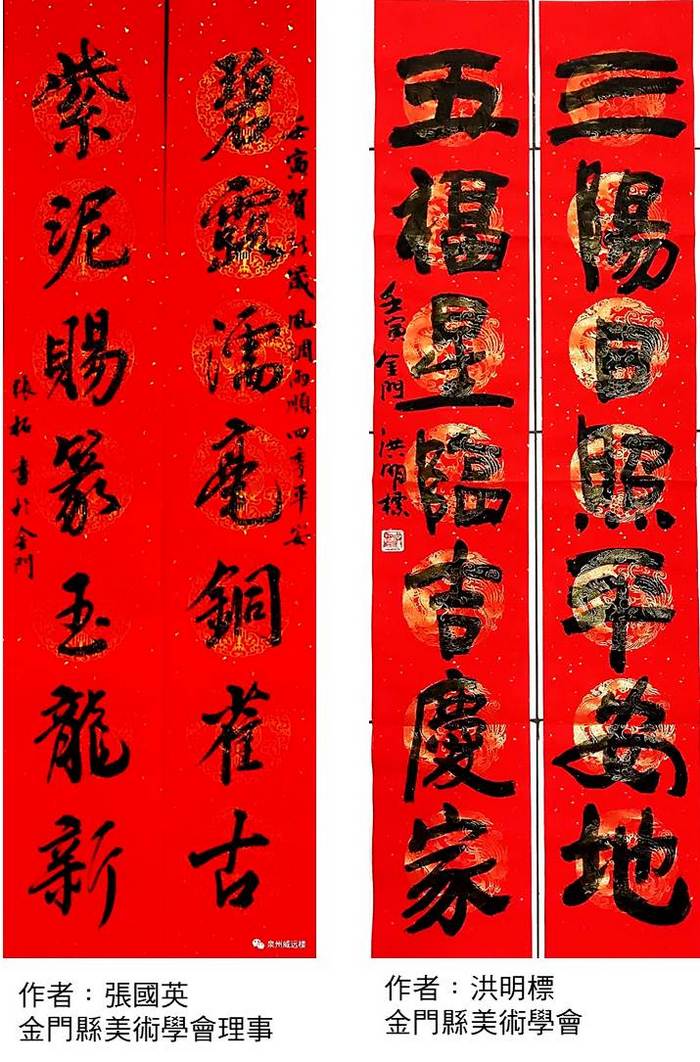 壬寅賀新歲風調雨順四季平安
碧露濡毫銅雀古
紫泥賜篆玉龍新
張拓書於金門
泉州威远楼
三陽日照平安地
五福星臨吉慶家
壬寅 金門 洪明標
作者：張國英
金門縣美術學會理事
作者：洪明標
金門縣美術學會